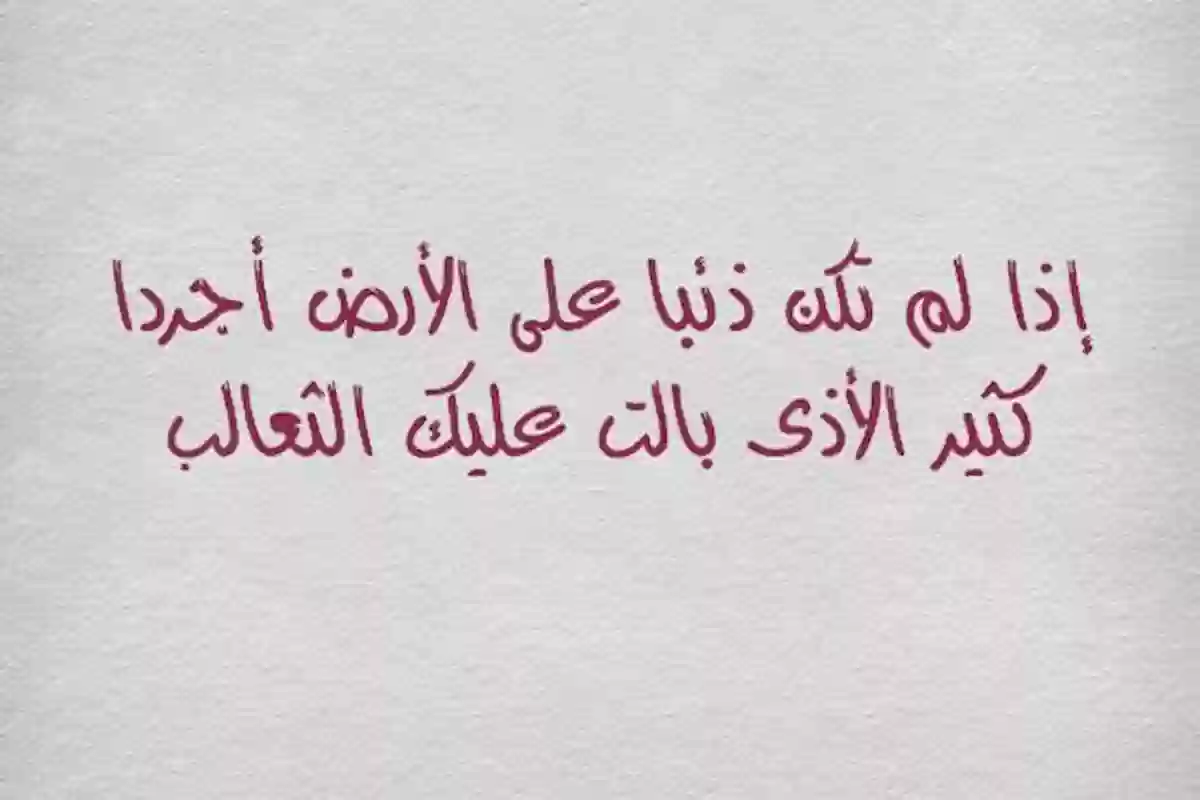 إذا لم تكن ذئبا على الأرض أجردا
كثير الأذى بالت عليك الثعالب